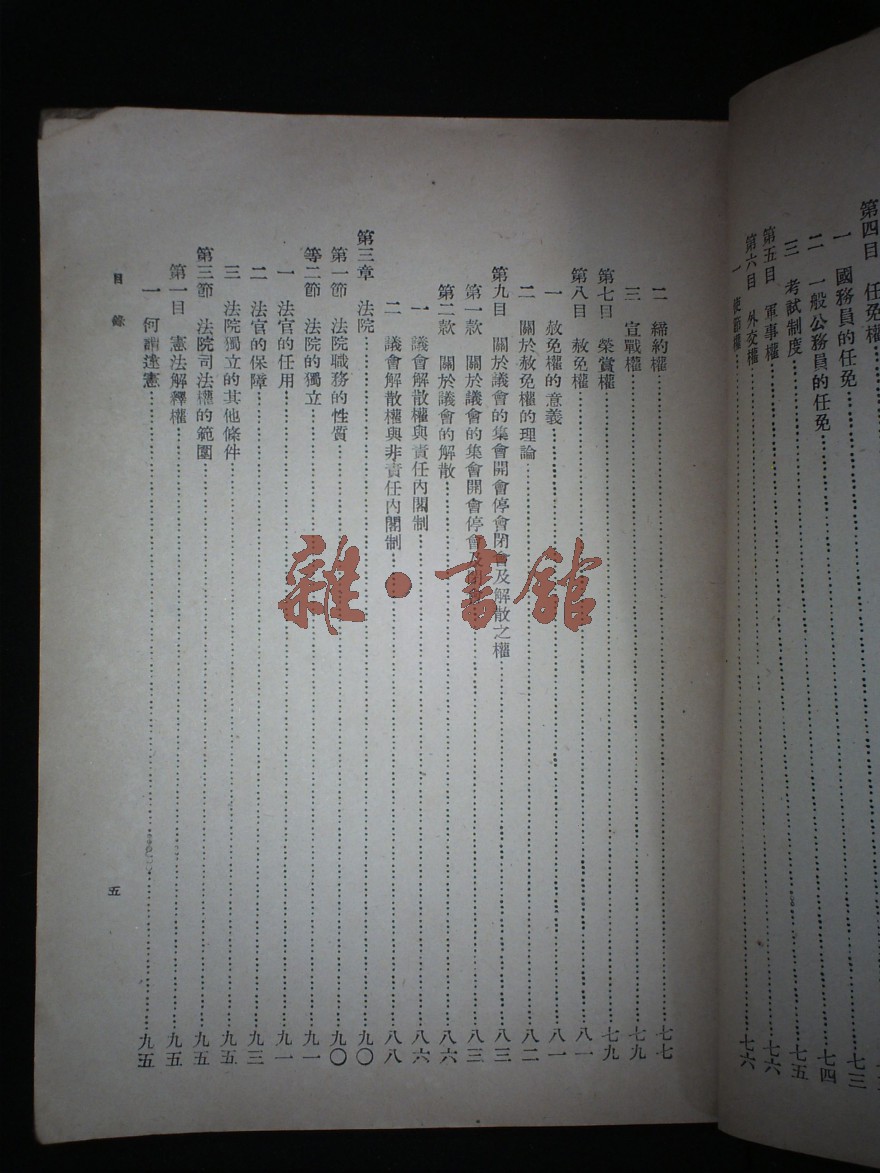 第四目 任免權
一 國務員的任免……七三
二 一般公務員的任免……七四
三 考試制度……七五
第五目 軍事權……七六
第六目 外交權……七六
一 使節權……
二 締約權……七七
三 宣戰權……七九
第七目 榮賞權……七九
第八目 赦免權……八一
一 赦免權的意義……八一
二 關於赦免權的理論……八二
第九目 關於議會的集會開會停會閉會及解散之權……八三
第一款 關於議會的集會開會停會及……八三
第二款 關於議會的解散……八六
一 議會解散權與責任內閣制……八六
二 議會解散權與非責任內閣制……八八
第三章 法院……九〇
第一節 法院職務的性質……九〇
等二節 法院的獨立……九一
一 法官的任用……九一
二 法官的保障……九三
三 法院獨立的其他條件……九五
第三節 法院司法權的範圍……九五
第一目 憲法解釋權……九五
一 何謂違憲……九五
目錄
五
雜·書館